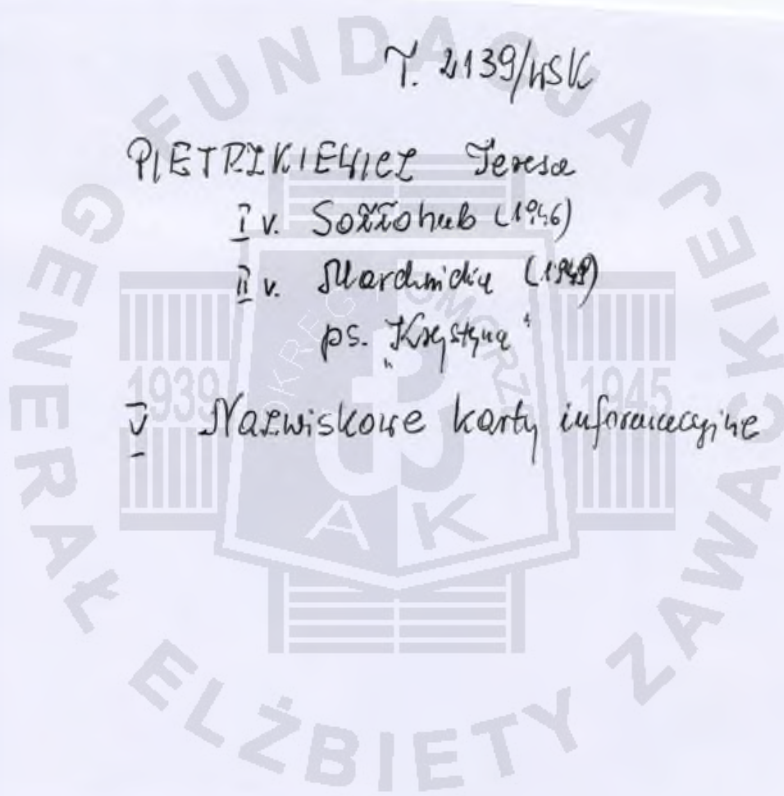 T. 2139/WSK
PIETRZKIEWICZ Teresa
I v. Sołłohub (1946)
II v. (1949)
ps. "Krystyna"
V Nazwiskowe karty informacyjne
FUNDACJA GENERAŁ ELŻBIETY ZAWACKIEJ
OKRĘG POMORZE
1939 1945
AK